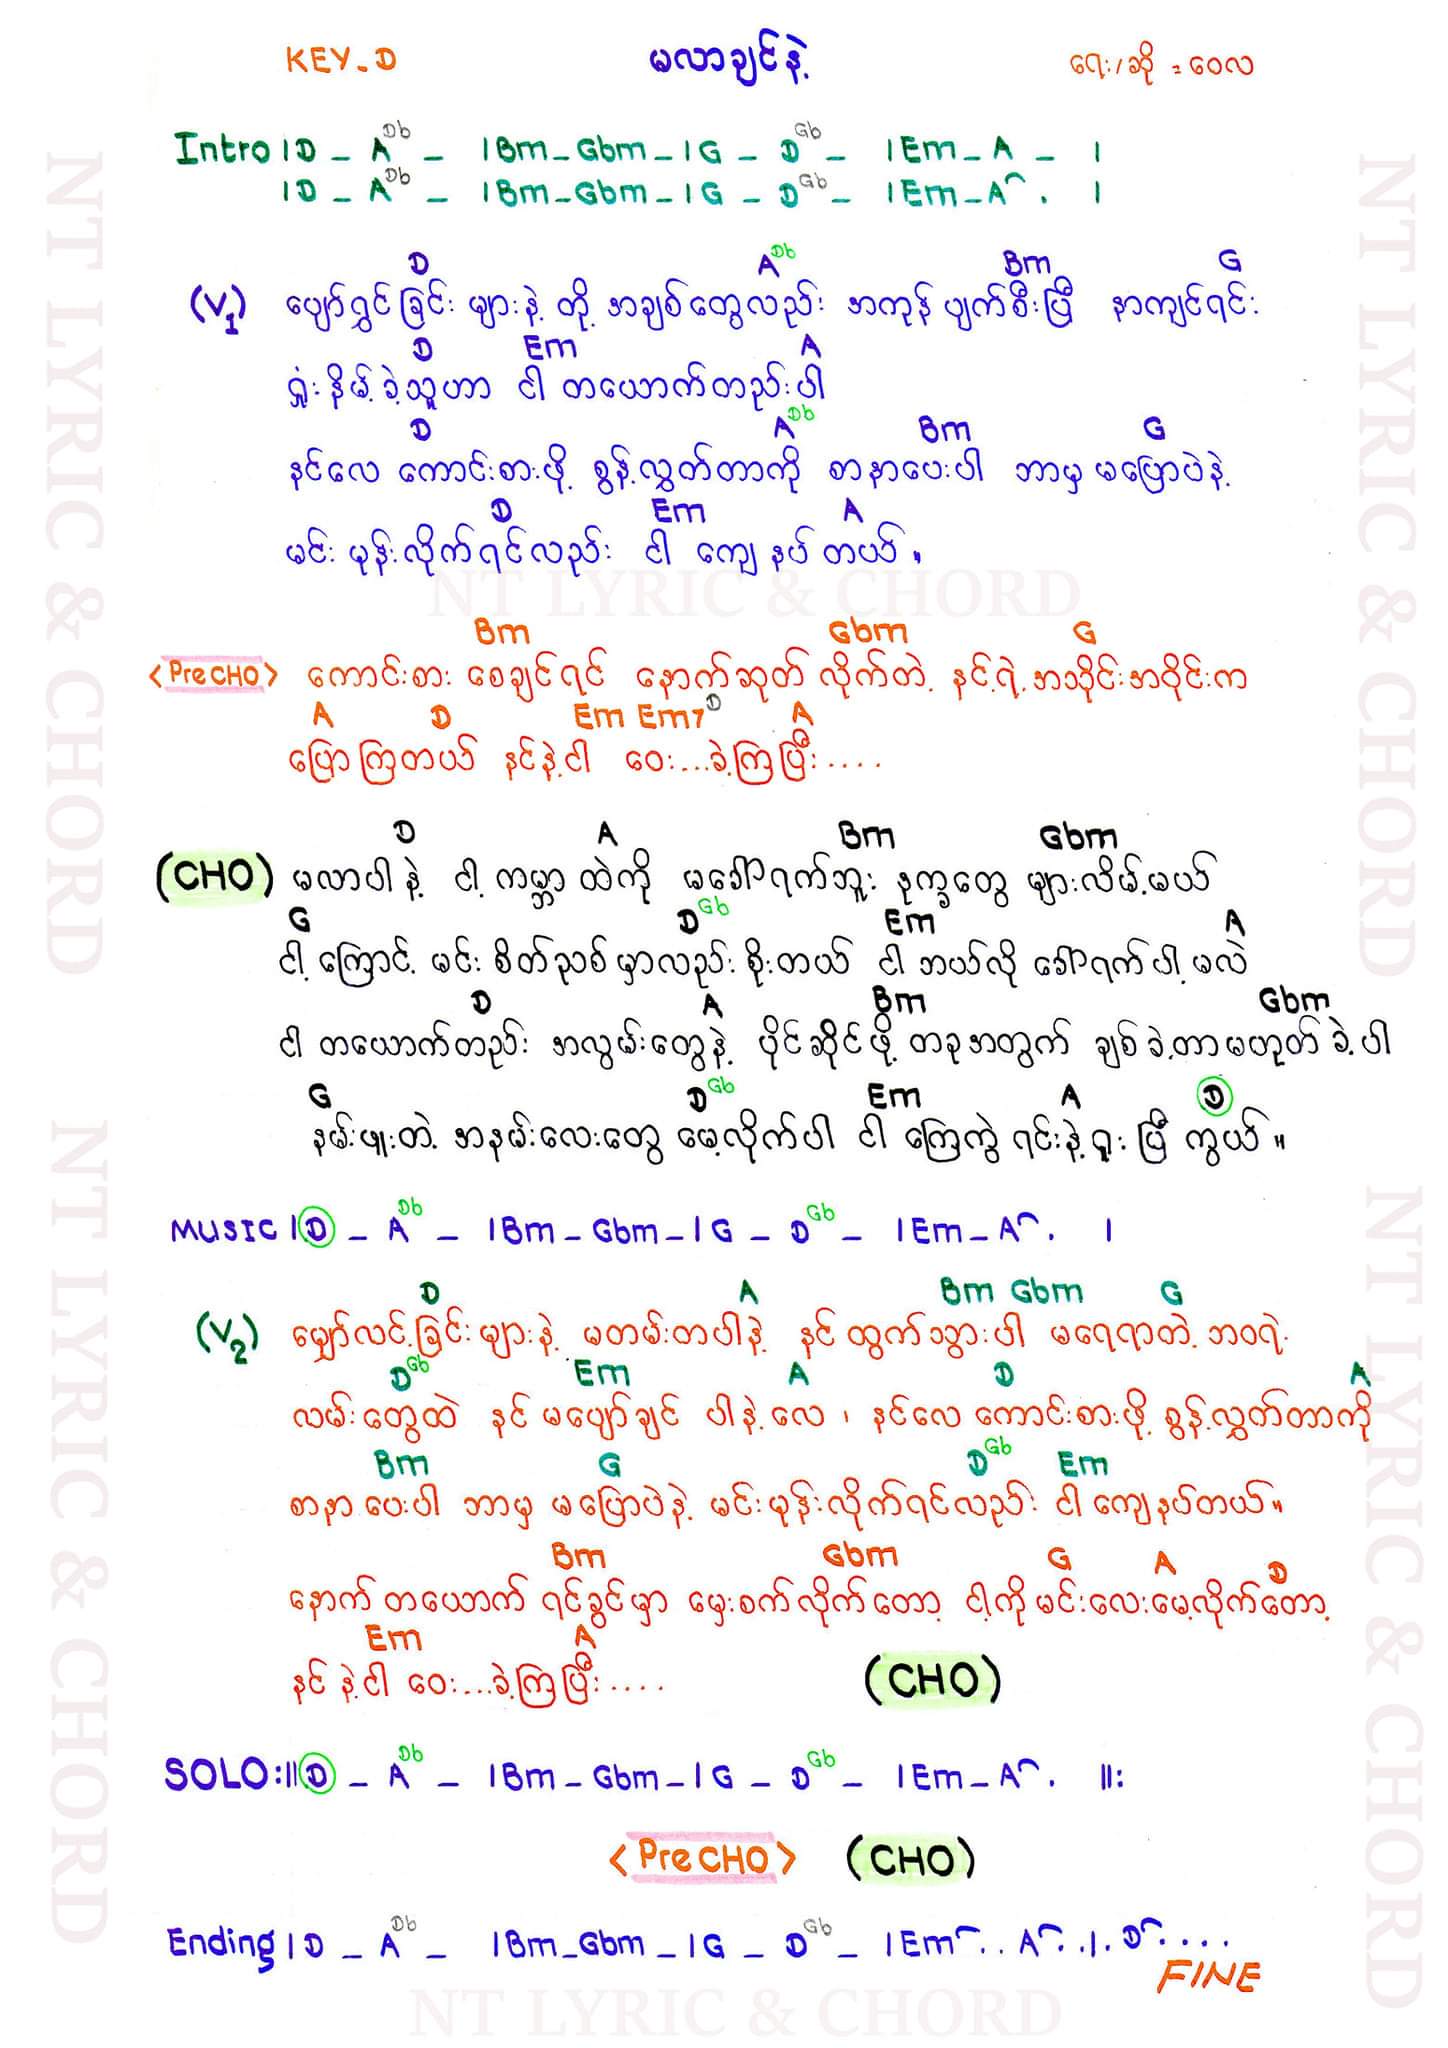 KEY-D မလာချင်နဲ့ ရေး/ဆို = ဝေလ
Intro | D - A Db - | Bm - Gbm - | G - D Gb - | Em - A - |
| D - A Db - | Bm - Gbm - | G - D Gb - | Em - A . |
D A Db Bm G
(V1) ပျော်ရွှင်ခြင်း များနဲ့ တို့ အချစ်တွေလည်း အကုန် ပျက်စီးပြီ နာကျင်ရင်း
D Em A
ရှုံးနိမ့်ခဲ့သူဟာ ငါ တယောက်တည်းပါ
D A Db Bm G
နင်လေ ကောင်းစားဖို့ စွန့်လွှတ်တာကို စာနာပေးပါ ဘာမှ မပြောပဲနဲ့
D Em A
မင်း မုန်းလိုက်ရင်လည်း ငါ ကျေနပ်တယ်။
NT LYRIC & CHORD
Bm Gbm G
<Pre CHO> ကောင်းစား စေချင်ရင် နောက်ဆုတ် လိုက်တဲ့ နင့်ရဲ့ အသိုင်းအဝိုင်းက
A D Em Em7 D A
ပြောကြတယ် နင်နဲ့ငါ ဝေး...ခဲ့ကြပြီး....
D A Bm Gbm
(CHO) မလာပါနဲ့ ငါ့ ကမ္ဘာထဲကို မခေါ်ရက်ဘူး ဒုက္ခတွေ များလိမ့်မယ်
G D Gb Em A
ငါ့ ကြောင့် မင်း စိတ်ညစ်မှာလည်း စိုးတယ် ငါ ဘယ်လို ခေါ်ရက်ပါ့မလဲ
D A Bm Gbm
ငါ တယောက်တည်း အလွမ်းတွေနဲ့ ပိုင်ဆိုင်ဖို့ တခုအတွက် ချစ်ခဲ့တာမဟုတ်ခဲ့ပါ
G D Gb Em A D
နမ်းဖူးတဲ့ အနမ်းလေးတွေ မေ့လိုက်ပါ ငါ ကြေကွဲရင်းနဲ့ ရူးပြီ ကွယ်။
MUSIC | D - A Db - | Bm - Gbm - | G - D Gb - | Em - A . |
D A Bm Gbm G
(V2) မျှော်လင့်ခြင်းများနဲ့ မတမ်းတပါနဲ့ နင် ထွက်သွားပါ မရေရာတဲ့ ဘဝရဲ့
D Gb Em A D A
လမ်းတွေထဲ နင် မပျော်ချင် ပါနဲ့လေ ၊ နင်လေ ကောင်းစားဖို့ စွန့်လွှတ်တာကို
Bm G D Gb Em
စာနာပေးပါ ဘာမှ မပြောပဲနဲ့ မင်းမုန်းလိုက်ရင်လည်း ငါ ကျေနပ်တယ်။
Bm Gbm G A D
နောက်တယောက် ရင်ခွင်မှာ မှေးစက်လိုက်တော့ ငါ့ကိုမင်းလေးမေ့လိုက်တော့
Em A
နင်နဲ့ငါ ဝေး...ခဲ့ကြပြီး.... (CHO)
SOLO :|| D - A Db - | Bm - Gbm - | G - D Gb - | Em - A . ||:
<Pre CHO> (CHO)
Ending | D - A Db - | Bm - Gbm - | G - D Gb - | Em .. A .. | . D ....
FINE
NT LYRIC & CHORD
NT LYRIC & CHORD
NT LYRIC & CHORD
NT LYRIC & CHORD
NT LYRIC & CHORD
NT LYRIC & CHORD